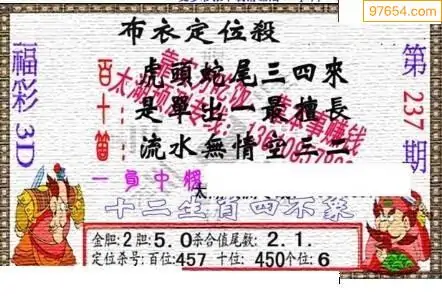 97654.com
布衣定位殺
福彩3D
第237期
百: 虎頭蛇尾三四來
十: 是單出一最擅長
箇: 流水無情空三二
一員中將
太
十二生肖四不像
金胆:2胆:5.0杀合值尾数:2.1.
定位杀号:百位:457 十位:450个位:6